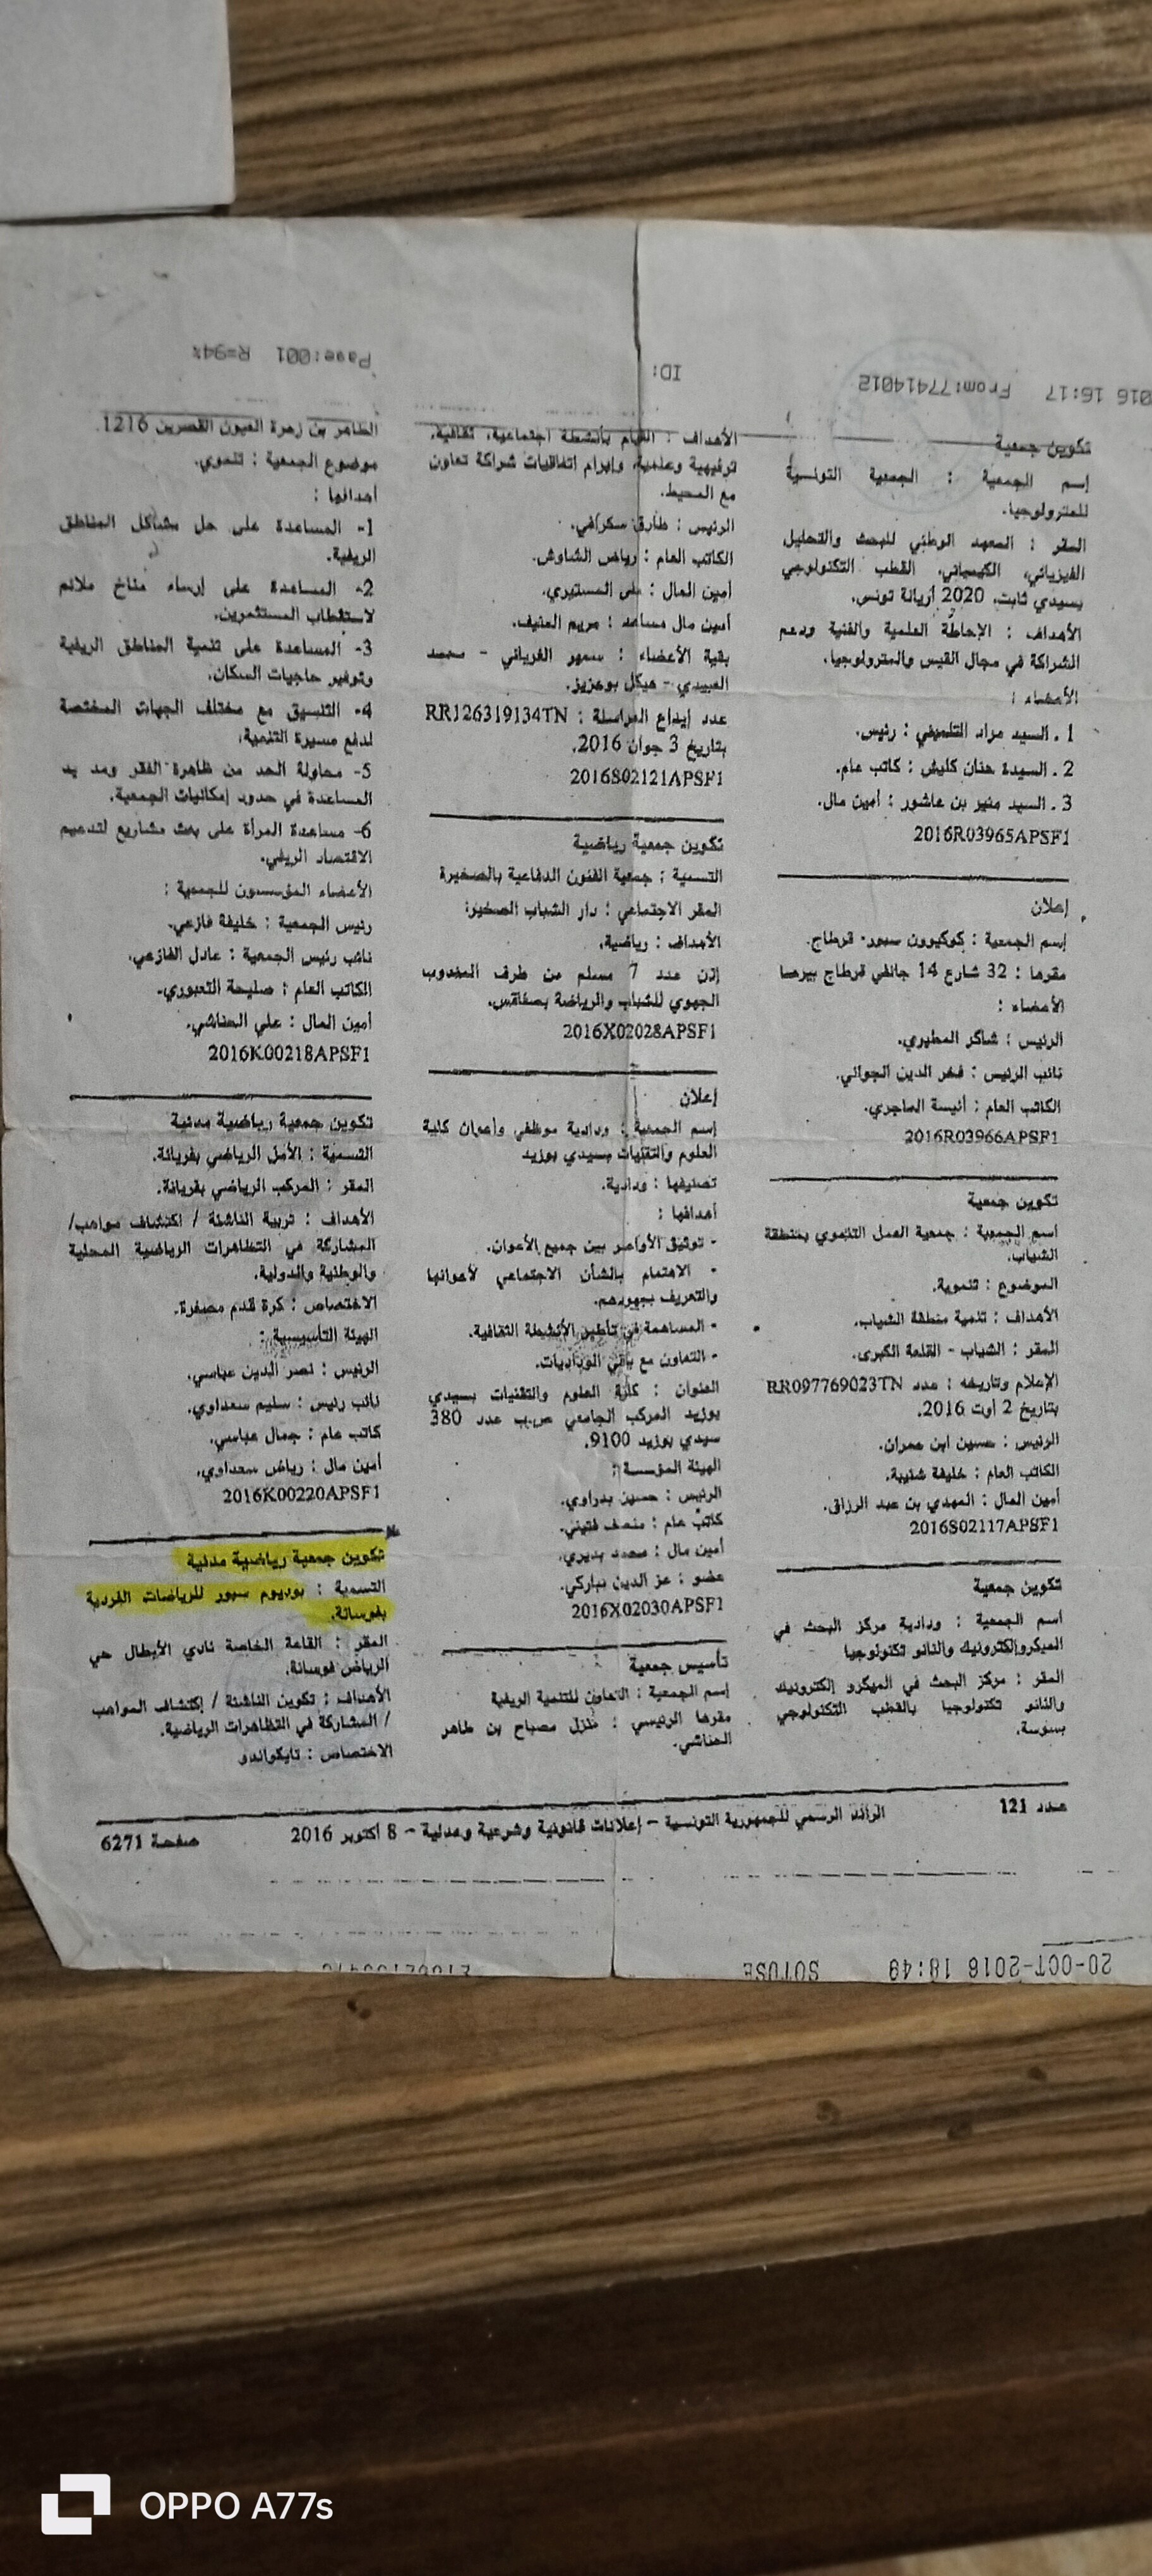 Page:001 R=94%
ID:
016 16:17 From:77414012
تكوين جمعية
إسم الجمعية : الجمعية التونسية
للمترولوجيا.
المقر : المعهد الوطني للبحث والتحليل
الفيزيائي، الكيميائي، القطب التكنولوجي
بسيدي ثابت، 2020 أريانة تونس.
الأهداف : الإحاطة العلمية والفنية ودعم
الشراكة في مجال القيس والمترولوجيا.
الأعضاء :
1 . السيد مراد التلميذي : رئيس.
2 . السيدة حنان كليش : كاتب عام.
3 . السيد منير بن عاشور : أمين مال.
2016R03965APSF1
إعلان
إسم الجمعية : كوكيرون سبور- قرطاج.
مقرها : 32 شارع 14 جانفي قرطاج بيرصا
الأعضاء :
الرئيس : شاكر المطيري.
نائب الرئيس : فخر الدين الجواني.
الكاتب العام : أنيسة الماجري.
2016R03966APSF1
تكوين جمعية
اسم الجمعية : جمعية العمل التنموي بمنطقة
الشياب.
الموضوع : تنموية.
الأهداف : تنمية منطقة الشياب.
المقر : الشياب - القلعة الكبرى.
الإعلام وتاريخه : عدد RR097769023TN
بتاريخ 2 أوت 2016.
الرئيس : حسين ابن عمران.
الكاتب العام : خليفة شنيبة.
أمين المال : المهدي بن عبد الرزاق.
2016S02117APSF1
تكوين جمعية
اسم الجمعية : ودادية مركز البحث في
الميكروإلكترونيك والنانو تكنولوجيا
المقر : مركز البحث في الميكرو إلكترونيك
والنانو تكنولوجيا بالقطب التكنولوجي
بسوسة.
الأهداف : القيام بأنشطة اجتماعية، ثقافية،
ترفيهية وعلمية، وإبرام إتفاقيات شراكة تعاون
مع المحيط.
الرئيس : طارق سكرافي.
الكاتب العام : رياض الشاوش.
أمين المال : على المستيري.
أمين مال مساعد : مريم العنيف.
بقية الأعضاء : سمير الفرياني - محمد
العبيدي - هيكل بوعزيز.
عدد إيداع المراسلة : RR126319134TN
بتاريخ 3 جوان 2016.
2016S02121APSF1
تكوين جمعية رياضية
التسمية : جمعية الفنون الدفاعية بالصخيرة
المقر الاجتماعي : دار الشباب الصخيرة
الأهداف : رياضية.
إذن عدد 7 مسلم من طرف المندوب
الجهوي للشباب والرياضة بصفاقس.
2016X02028APSF1
إعلان
إسم الجمعية : ودادية موظفي وأعوان كلية
العلوم والتقنيات بسيدي بوزيد
تصنيفها : ودادية.
أهدافها :
- توثيق الأواصر بين جميع الأعوان.
- الاهتمام بالشأن الاجتماعي لأعوانها
والتعريف بجهودهم.
- المساهمة في تأطير الأنشطة الثقافية.
- التعاون مع باقي الوداديات.
العنوان : كلية العلوم والتقنيات بسيدي
بوزيد المركب الجامعي ص.ب عدد 380
سيدي بوزيد 9100.
الهيئة المؤسسة :
الرئيس : حسين بدراوي.
كاتب عام : منصف فتيني.
أمين مال : محمد بديري.
عضو : عز الدين مباركي.
2016X02030APSF1
تأسيس جمعية
إسم الجمعية : التعاون للتنمية الريفية
مقرها الرئيسي : منزل مصباح بن طاهر
الحناشي.
الطاهر بن زهرة العيون القصرين 1216.
موضوع الجمعية : تنموي.
أهدافها :
1- المساعدة على حل مشاكل المناطق
الريفية.
2- المساعدة على إرساء مناخ ملائم
لاستقطاب المستثمرين.
3- المساعدة على تنمية المناطق الريفية
وتوفير حاجيات السكان.
4- التنسيق مع مختلف الجهات المختصة
لدفع مسيرة التنمية.
5- محاولة الحد من ظاهرة الفقر ومد يد
المساعدة في حدود إمكانيات الجمعية.
6- مساعدة المرأة على بعث مشاريع لتدعيم
الاقتصاد الريفي.
الأعضاء المؤسسون للجمعية :
رئيس الجمعية : خليفة فازعي.
نائب رئيس الجمعية : عادل الفازعي.
الكاتب العام : صليحة التعبوري.
أمين المال : علي الحناشي.
2016K00218APSF1
تكوين جمعية رياضية مدنية
التسمية : الأمل الرياضي بفريانة.
المقر : المركب الرياضي بفريانة.
الأهداف : تربية الناشئة / اكتشاف مواهب/
المشاركة في التظاهرات الرياضية المحلية
والوطنية والدولية.
الاختصاص : كرة قدم مصغرة.
الهيئة التأسيسية :
الرئيس : نصر الدين عباسي.
نائب رئيس : سليم سعداوي.
كاتب عام : جمال عباسي.
أمين مال : رياض سعداوي.
2016K00220APSF1
تكوين جمعية رياضية مدنية
التسمية : بوديوم سبور للرياضات الفردية
بفوسانة.
المقر : القاعة الخاصة نادي الأبطال حي
الرياض فوسانة.
الأهداف : تكوين الناشئة / إكتشاف المواهب
/ المشاركة في التظاهرات الرياضية.
الاختصاص : تايكواندو
عدد 121 الرائد الرسمي للجمهورية التونسية – إعلانات قانونية وشرعية وعدلية – 8 أكتوبر 2016 صفحة 6271
20-OCT-2016 18:49 SOTUSE
OPPO A77s